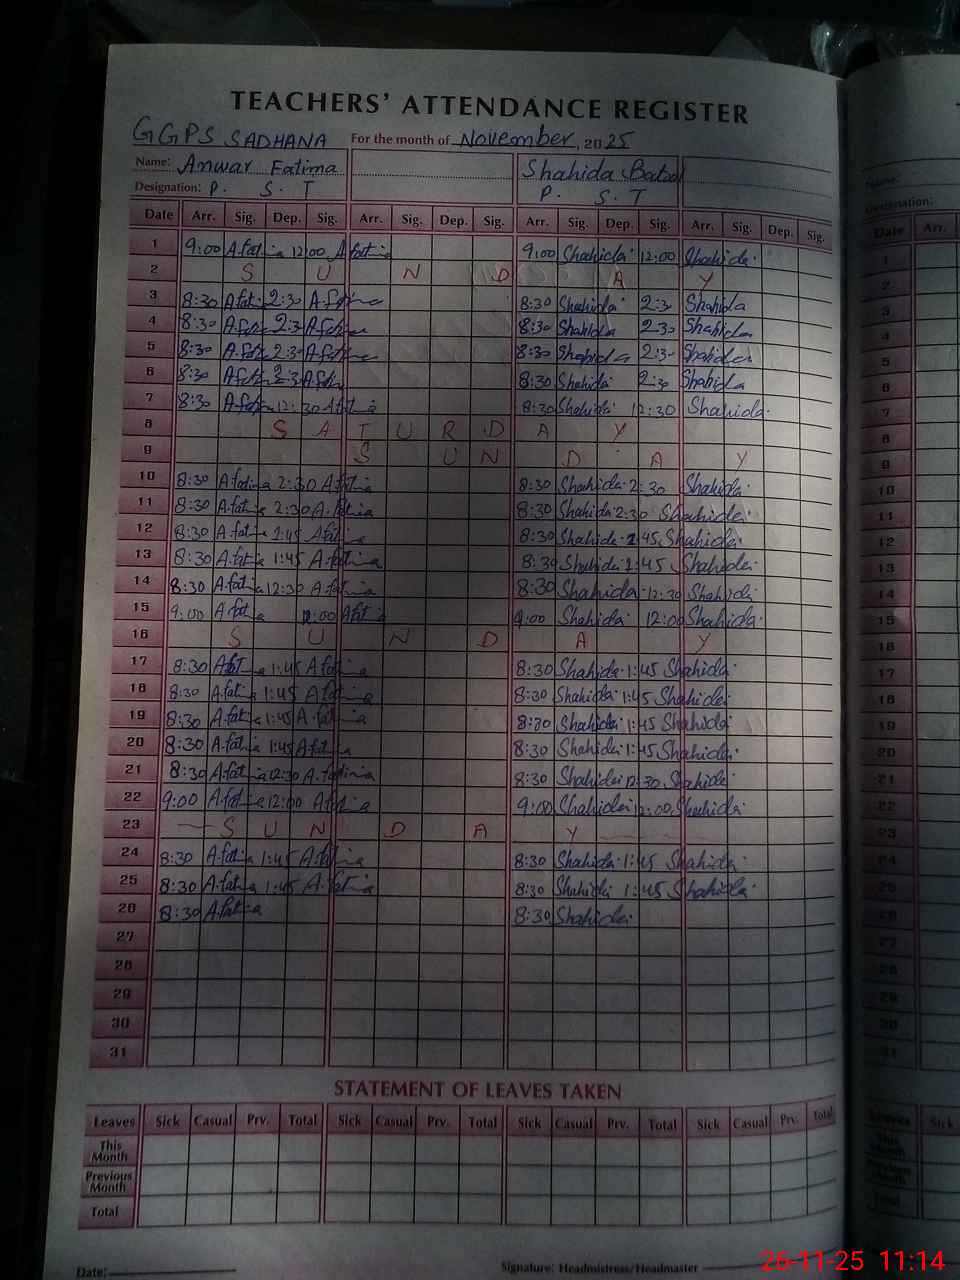 TEACHERS' ATTENDANCE REGISTER
GGPS SADHANA For the month of November, 2025
Name: Anwar Fatima Shahida Batool
Designation: P. S. T P. S. T
Date Arr. Sig. Dep. Sig. Arr. Sig. Dep. Sig. Arr. Sig. Dep. Sig. Arr. Sig. Dep. Sig.
1 9:00 A.fatima 12:00 A.fatima 9:00 Shahida 12:00 Shahida
2 S U N D A Y
3 8:30 A.fatima 2:30 A.fatima 8:30 Shahida 2:30 Shahida
4 8:30 A.fatima 2:30 A.fatima 8:30 Shahida 2:30 Shahida
5 8:30 A.fatima 2:30 A.fatima 8:30 Shahida 2:30 Shahida
6 8:30 A.fatima 2:30 A.fatima 8:30 Shahida 2:30 Shahida
7 8:30 A.fatima 12:30 A.fatima 8:30 Shahida 12:30 Shahida
8 S A T U R D A Y
9 S U N D A Y
10 8:30 A.fatima 2:30 A.fatima 8:30 Shahida 2:30 Shahida
11 8:30 A.fatima 2:30 A.fatima 8:30 Shahida 2:30 Shahida
12 8:30 A.fatima 1:45 A.fatima 8:30 Shahida 1:45 Shahida
13 8:30 A.fatima 1:45 A.fatima 8:30 Shahida 1:45 Shahida
14 8:30 A.fatima 12:30 A.fatima 8:30 Shahida 12:30 Shahida
15 9:00 A.fatima 12:00 A.fatima 9:00 Shahida 12:00 Shahida
16 S U N D A Y
17 8:30 A.fatima 1:45 A.fatima 8:30 Shahida 1:45 Shahida
18 8:30 A.fatima 1:45 A.fatima 8:30 Shahida 1:45 Shahida
19 8:30 A.fatima 1:45 A.fatima 8:30 Shahida 1:45 Shahida
20 8:30 A.fatima 1:45 A.fatima 8:30 Shahida 1:45 Shahida
21 8:30 A.fatima 12:30 A.fatima 8:30 Shahida 12:30 Shahida
22 9:00 A.fatima 12:00 A.fatima 9:00 Shahida 12:00 Shahida
23 S U N D A Y
24 8:30 A.fatima 1:45 A.fatima 8:30 Shahida 1:45 Shahida
25 8:30 A.fatima 1:45 A.fatima 8:30 Shahida 1:45 Shahida
26 8:30 A.fatima 8:30 Shahida
27
28
29
30
31
STATEMENT OF LEAVES TAKEN
Leaves Sick Casual Prv. Total Sick Casual Prv. Total Sick Casual Prv. Total Sick Casual Prv. Total
This Month
Previous Month
Total
Date: Signature: Headmistress/Headmaster
26-11-25 11:14